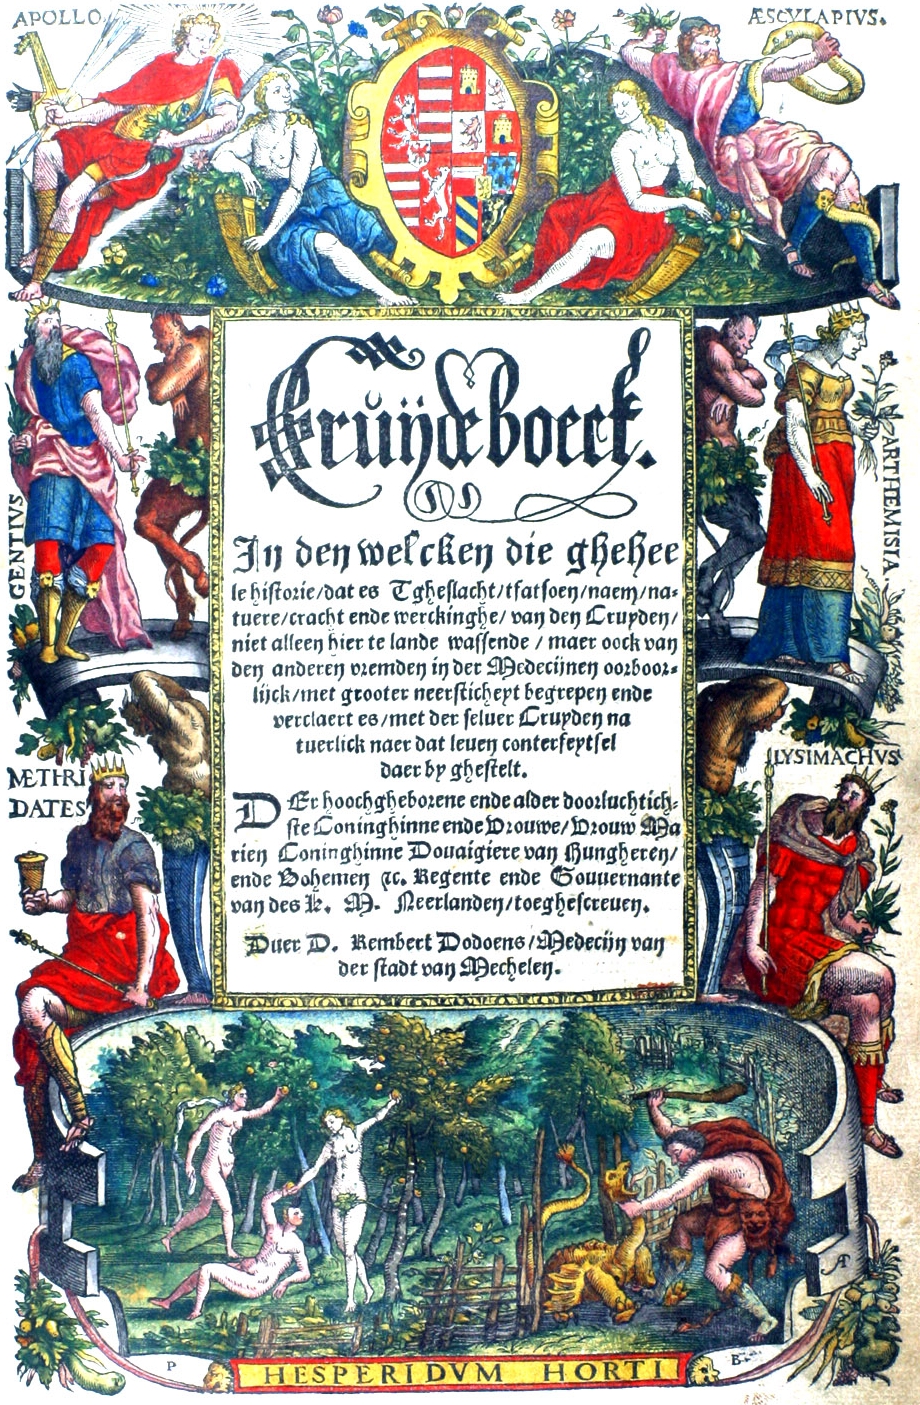 APOLLO
ÆSCVLAPIVS.
Cruÿdeboeck.
In den welcken die ghehee
le historie/dat es Tgheslacht/tfatsoen/naem/na-
tuere/cracht ende werckinghe/van den Cruyden/
niet alleen hier te lande wassende/maer oock van
den anderen vremden in der Medecijnen oorboor-
lijck/met grooter neersticheyt begrepen ende
verclaert es/met der seluer Cruyden na
tuerlick naer dat leuen conterfeytsel
daer by ghestelt.
DEr hoochgheborene ende alder doorluchtich-
ste Coninghinne ende Vrouwe/Vrouw Ma
rien Coninghinne Douaigiere van Hungheren/
ende Bohemen ꝛc. Regente ende Gouuernante
van des K. M. Neerlanden/toeghescreuen.
Duer D. Rembert Dodoens/Medecijn van
der stadt van Mechelen.
GENTIVS
ARTHEMISIA.
MÆTHRI
DATES
LYSIMACHVS
P
B
A
HESPERIDVM HORTI